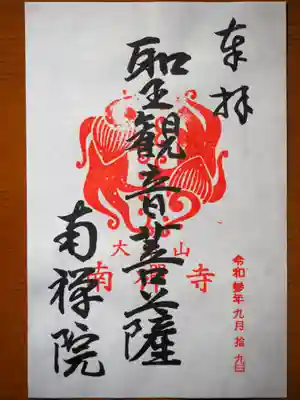 奉拝
令和参年九月拾九日
聖観音菩薩
大 山
南 寺
南禅院